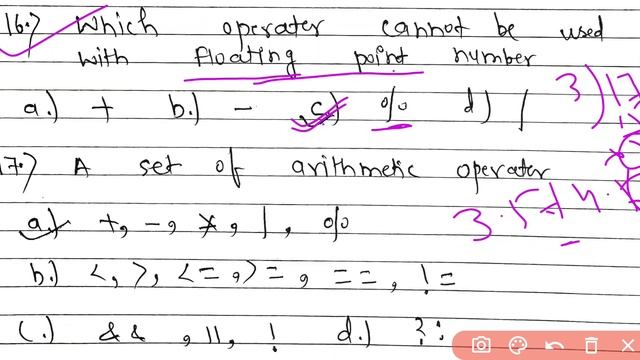 16.) Which operater cannot be used
with floating point number
a.) + b.) - c.) % d.) /
17.) A set of arithmetic operator
a.) +, -, *, /, %
b.) <, >, <=, >=, ==, !=
(c.) &&, ||, ! d.) ?:
3.5 %
3)17